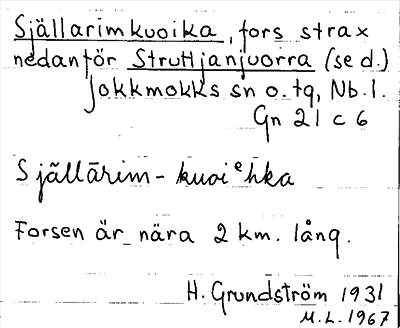 Själlarimkuoika, fors strax
nedanför Struttjanjuorra (se d.)
Jokkmokks sn o. tg, Nb. l.
Gn 21 c 6
Själlārim - kuoiᵉhka
Forsen är nära 2 km. lång.
H. Grundström 1931
M.L. 1967